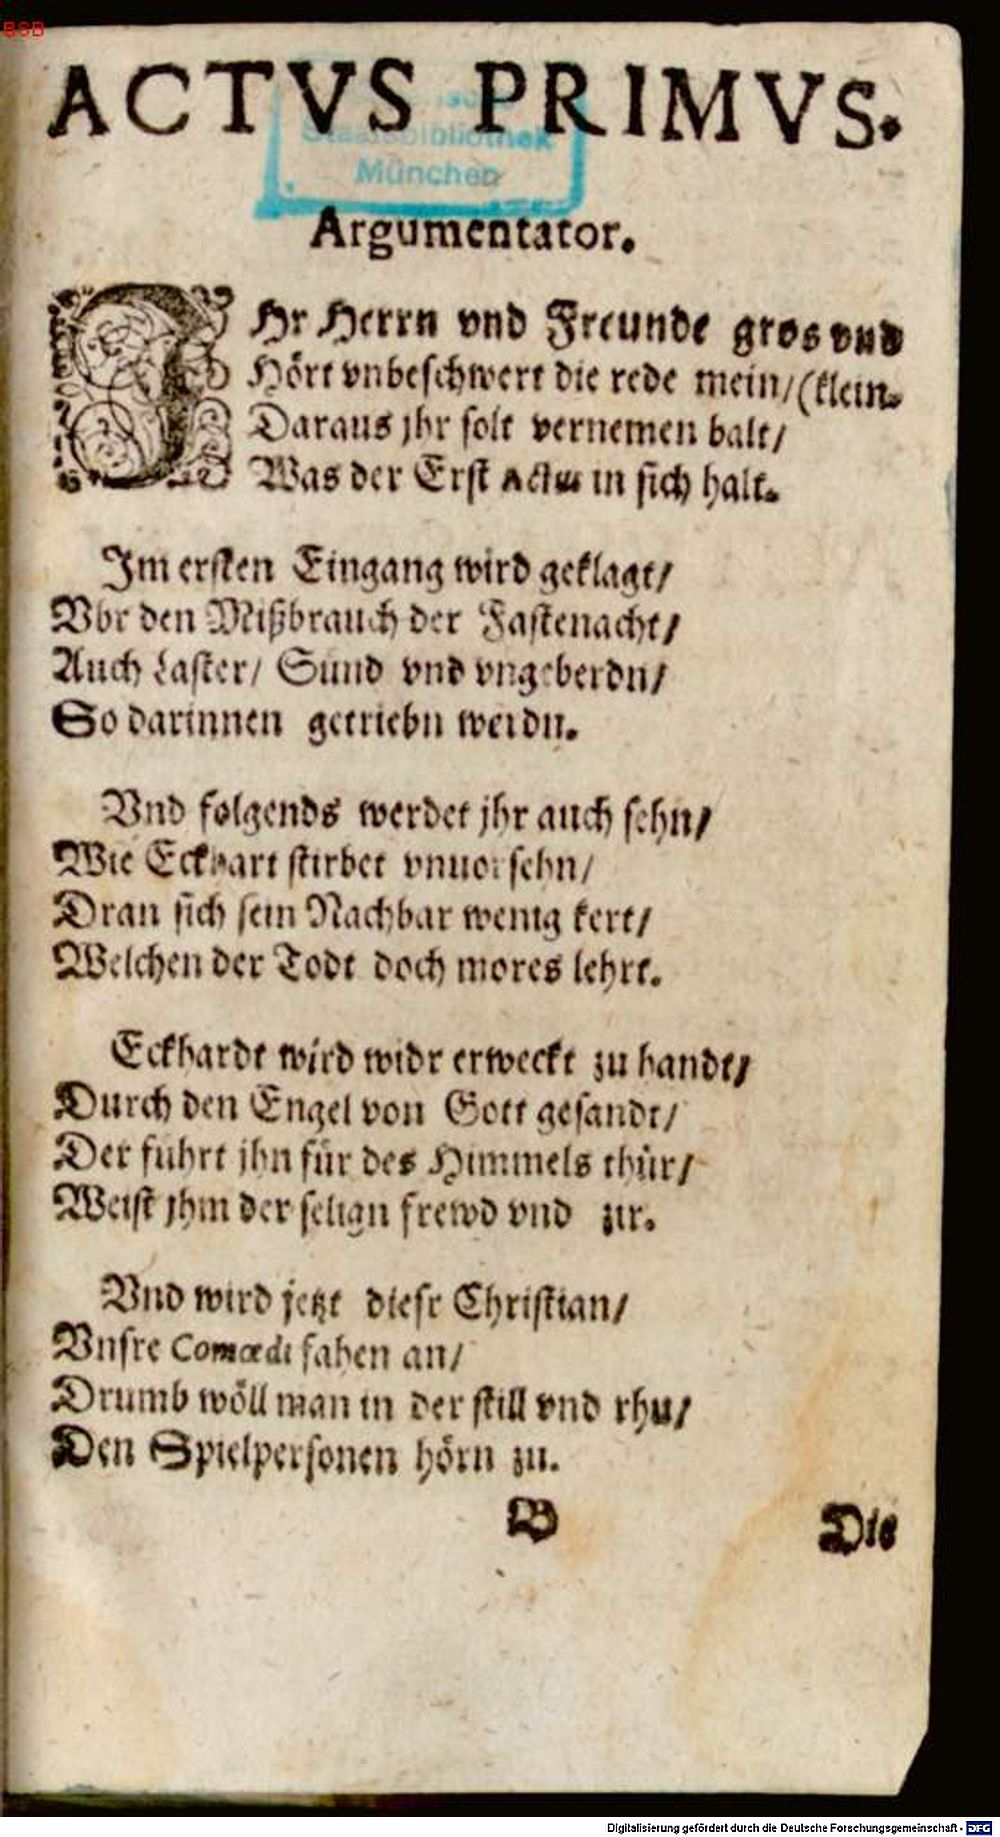 BSB
ACTVS PRIMVS.
Staatsbibliothek
München
Argumentator.
IHr Herrn vnd Freunde gros vnd
Hört vnbeschwert die rede mein/(klein.
Daraus jhr solt vernemen balt/
Was der Erst Actus in sich halt.
Im ersten Eingang wird geklagt/
Vbr den Mißbrauch der Fastenacht/
Auch Laster/ Sünd vnd vngeberdn/
So darinnen getriebn werdn.
Vnd folgends werdet jhr auch sehn/
Wie Eckhart stirbet vnuorsehn/
Dran sich sein Nachbar wenig kert/
Welchen der Todt doch mores lehrt.
Eckhardt wird widr erweckt zu handt/
Durch den Engel von Gott gesandt/
Der führt jhn für des Himmels thür/
Weist jhm der selign frewd vnd zir.
Vnd wird jetzt diesr Christian/
Vnsre Comœdi fahen an/
Drumb wöll man in der still vnd rhu/
Den Spielpersonen hörn zu.
B Die
Digitalisierung gefördert durch die Deutsche Forschungsgemeinschaft - DFG